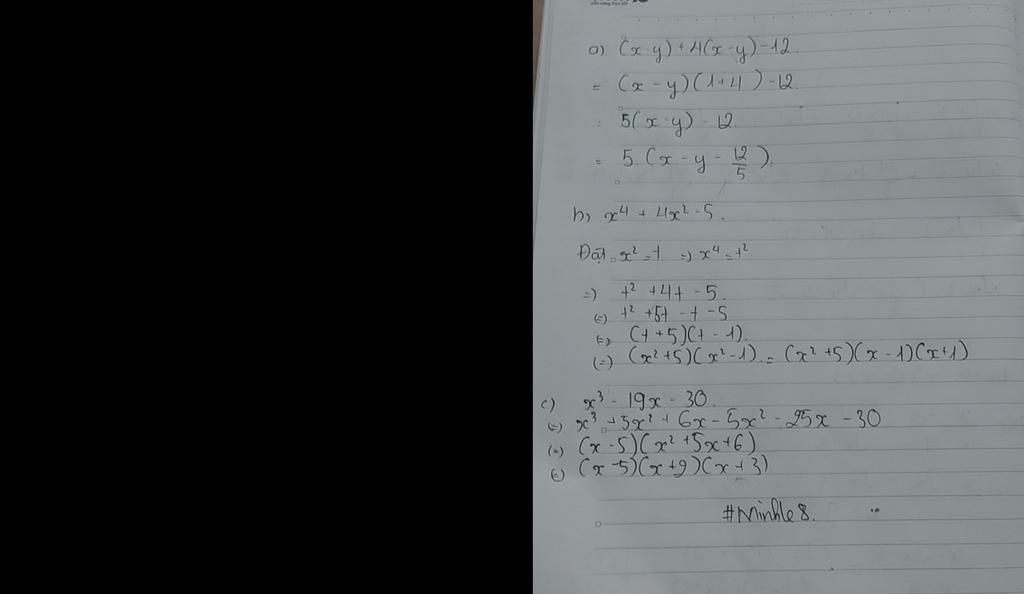 a) (x-y) + 4(x-y) - 12
= (x - y)(1+4) - 12
5(x-y) - 12.
= 5.(x - y - 12/5).
b) x⁴ + 4x² - 5.
Đặt x² = t => x⁴ = t²
=) t² + 4t - 5.
(=) t² + 5t - t - 5
(=) (t + 5)(t - 1).
(=) (x² + 5)(x² - 1). = (x² + 5)(x - 1)(x+1)
c) x³ - 19x - 30.
(=) x³ + 5x² + 6x - 5x² - 25x - 30
(=) (x - 5)(x² + 5x + 6)
(=) (x - 5)(x + 2)(x + 3)
#Minhle8.